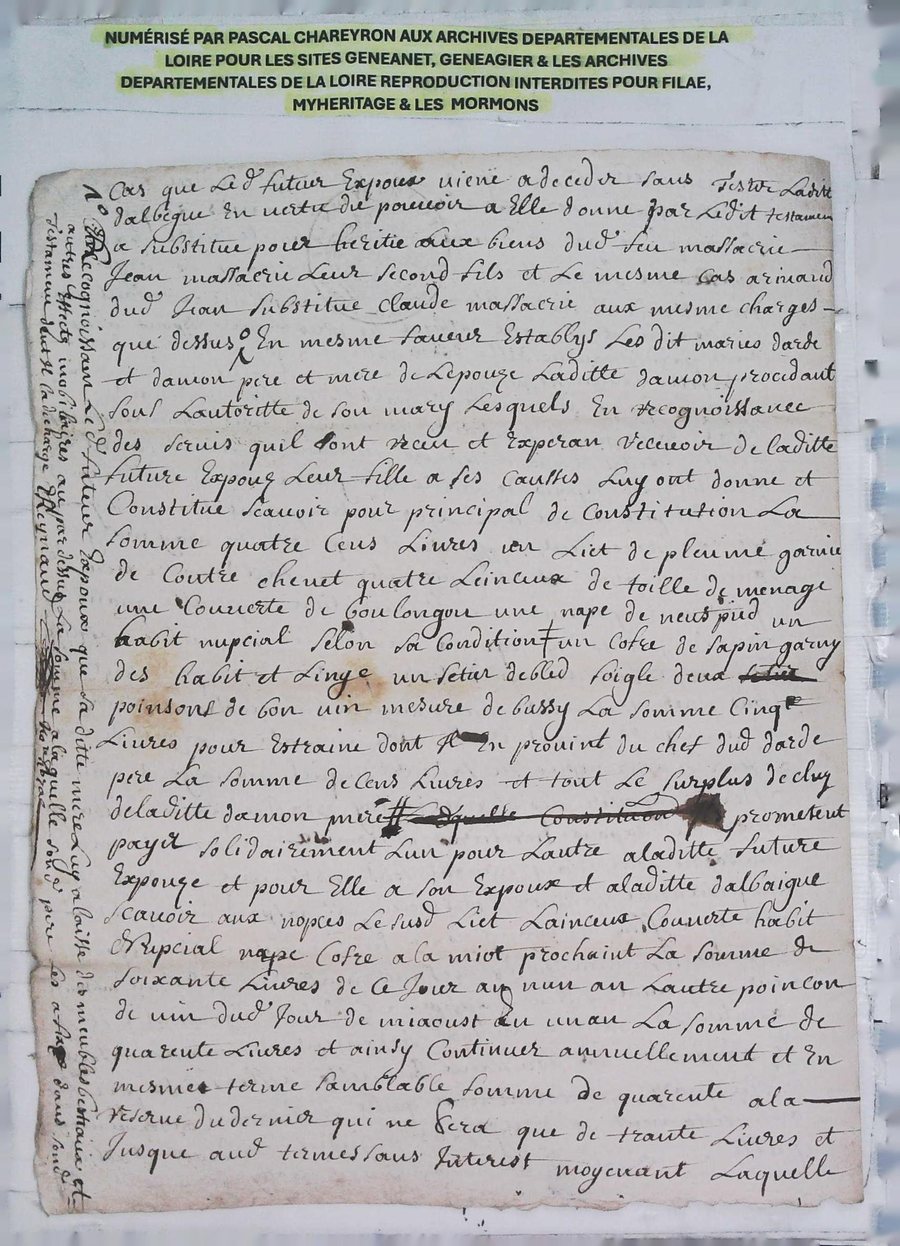 NUMÉRISÉ PAR PASCAL CHAREYRON AUX ARCHIVES DEPARTEMENTALES DE LA
LOIRE POUR LES SITES GENEANET, GENEAGIER & LES ARCHIVES
DEPARTEMENTALES DE LA LOIRE REPRODUCTION INTERDITES POUR FILAE,
MYHERITAGE & LES MORMONS
Cas que Led futur Expoux viene a deceder sans tester Ladite
dalbegue En vertu du pouvoir a Elle donne par Ledit testamen
a substitue pour heritie aux biens dud feu massacrie
Jean massacrie Leur second fils et Le mesme Cas arivand
dud Jean substitue Claude massacrie aux mesme charges
que dessus En mesme faveur Establys Les dit maries darde
et damon pere et mere de Lepouze Laditte damon procedant
sous Lautoritte de son mary Lesquels En recognoissance
des servis quil ont receu et Experan recevoir de laditte
future Expouze Leur fille a ses Causses Luy ont donne et
Constitue scavoir pour principal de Constitution La
somme quatre Cens Livres un Lict de plume garnie
de Coutre chevet quatre Leinceux de toille de menage
une Couverte de boulongou une nape de neuf pied un
habit nupcial selon sa Condition un Cofre de sapin garny
des habit et Linge un setier debled soigle deux
poinsons de bon vin mesure de bussy La somme Cinq
Livres pour Estraine dont En provint du chef dud darde
pere La somme de cens Livres et tout Le surplus de cluy
deladitte damon mere prometent
payer solidairement Lun pour Lautre aladitte future
Expouze et pour Elle a son Expoux et aladitte dalbaigue
scavoir aux nopces Le susd Lict Lainceux Couverte habit
Nupcial nape Cofre a la miot prochaint La somme de
soixante Livres de Ce Jour an nun an Lautre poincon
de vin dud Jour de miaoust En unan La somme de
quarente Livres et ainsy Continuer annuellement et En
mesmes terme samblable somme de quarente ala
reserve du dernier qui ne sera que de trante Livres et
Jusque aud termes sans Interest moyenant Laquelle
Recognoissant Led futeur Expoux que sa ditte mere Luy a laisse des meubles bestiaux et
autres effects mobiliaires au par dessus La somme a laquelle sond pere Les a dans sond
testament dont Il la decharge